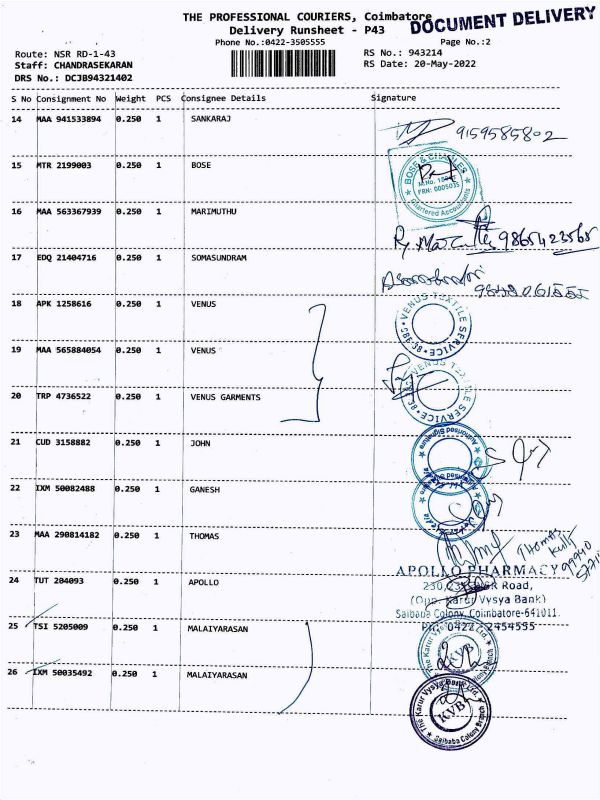 THE PROFESSIONAL COURIERS, Coimbatore
DOCUMENT DELIVERY
Delivery Runsheet - P43
Phone No.:0422-3505555
Page No.:2
Route: NSR RD-1-43
RS No.: 943214
Staff: CHANDRASEKARAN
RS Date: 20-May-2022
DRS No.: DCJB94321402
S No Consignment No Weight PCS Consignee Details Signature
14 MAA 941533894 0.250 1 SANKARAJ
9159585802
15 MTR 2199003 0.250 1 BOSE
BOSE & CHARLES
FRN: 000503S
Chartered Accountants
16 MAA 563367939 0.250 1 MARIMUTHU
9865423565
17 EDQ 21404716 0.250 1 SOMASUNDRAM
18 APK 1258616 0.250 1 VENUS
VENUS TEXTILE SERVICE
19 MAA 565884054 0.250 1 VENUS
VENUS TEXTILE SERVICE
20 TRP 4736522 0.250 1 VENUS GARMENTS
21 CUD 3158882 0.250 1 JOHN
Authorised Signature
22 IXM 50082488 0.250 1 GANESH
23 MAA 290814182 0.250 1 THOMAS
Thomas
24 TUT 204093 0.250 1 APOLLO
APOLLO PHARMACY
Road,
(Opp. Karur Vysya Bank)
Saibaba Colony, Coimbatore-641011.
PH: 0422 - 2454555
25 TSI 5205009 0.250 1 MALAIYARASAN
The Karur Vysya Bank Ltd.
KVB
26 IXM 50035492 0.250 1 MALAIYARASAN
The Karur Vysya Bank Ltd.
KVB
Saibaba Colony Branch